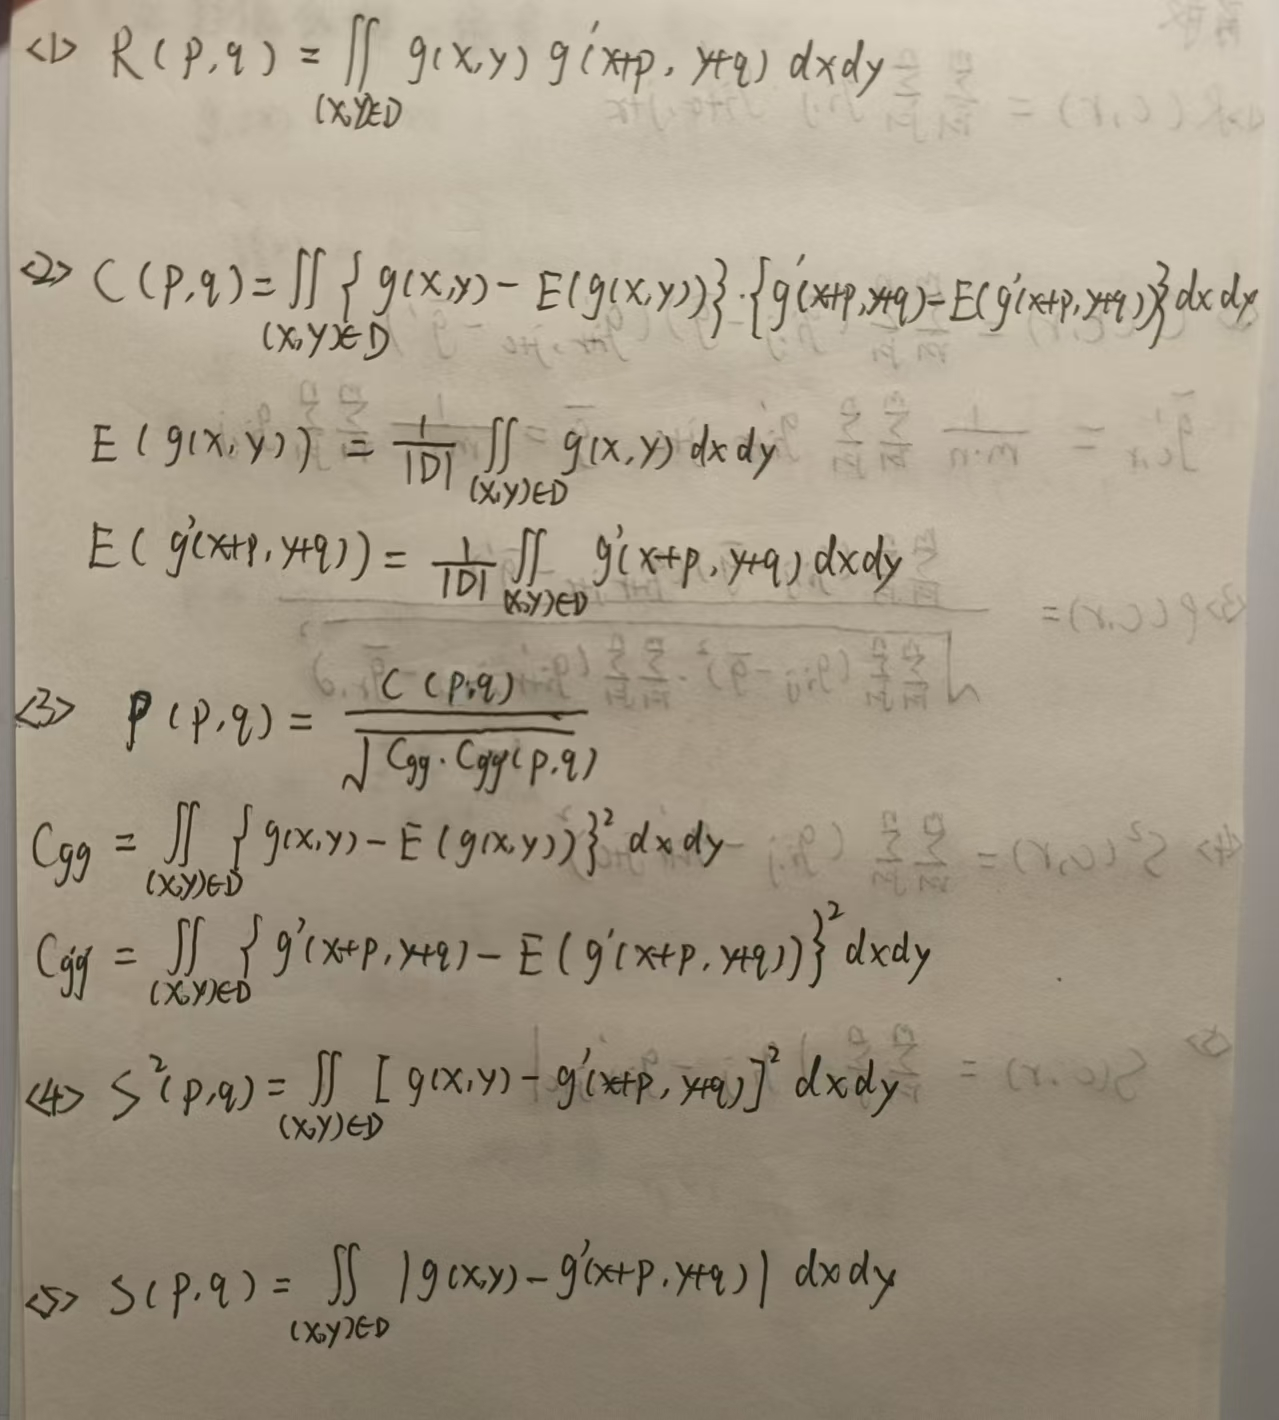 <1> R(p,q) = ∬_{(x,y)∈D} g(x,y) g'(x+p, y+q) dxdy
<2> C(p,q) = ∬_{(x,y)∈D} {g(x,y) - E(g(x,y))}·{g'(x+p,y+q) - E(g'(x+p,y+q))} dxdy
E(g(x,y)) = 1/|D| ∬_{(x,y)∈D} g(x,y) dxdy
E(g'(x+p,y+q)) = 1/|D| ∬_{(x,y)∈D} g'(x+p,y+q) dxdy
<3> ρ(p,q) = C(p,q) / √(C_{gg}·C_{g'g'}(p,q))
C_{gg} = ∬_{(x,y)∈D} {g(x,y) - E(g(x,y))}² dxdy
C_{g'g'} = ∬_{(x,y)∈D} {g'(x+p,y+q) - E(g'(x+p,y+q))}² dxdy
<4> S²(p,q) = ∬_{(x,y)∈D} [g(x,y) - g'(x+p,y+q)]² dxdy
<5> S(p,q) = ∬_{(x,y)∈D} |g(x,y) - g'(x+p,y+q)| dxdy